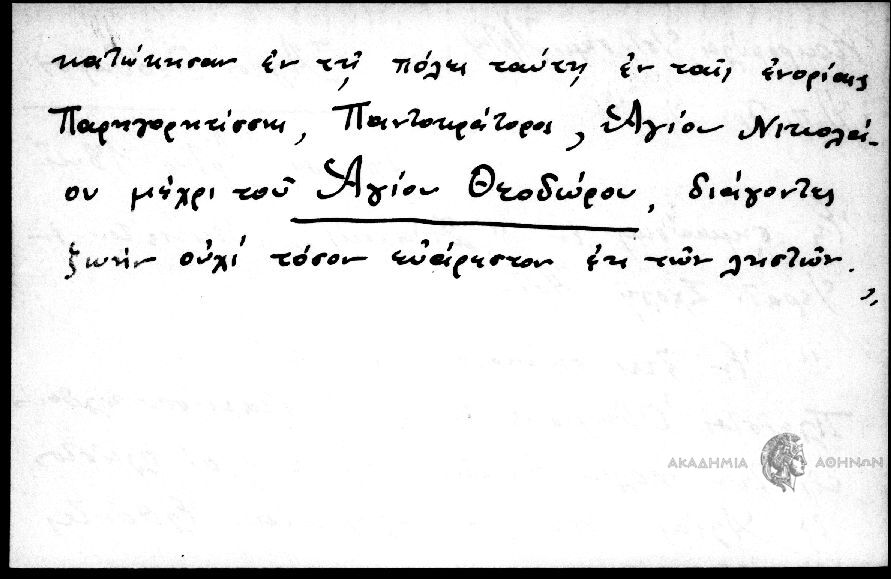 κατώκησαν ἐν τῇ πόλει ταύτῃ ἐν ταῖς ἐνορίαις
Παρηγορητίσσης, Παντοκράτορος, Ἁγίου Νικολά-
ου μέχρι τοῦ Ἁγίου Θεοδώρου, διάγοντες
ζωὴν οὐχί τόσον εὐάρεστον ἐκ τῶν ληστῶν.
"
ΑΚΑΔΗΜΙΑ ΑΘΗΝΩΝ